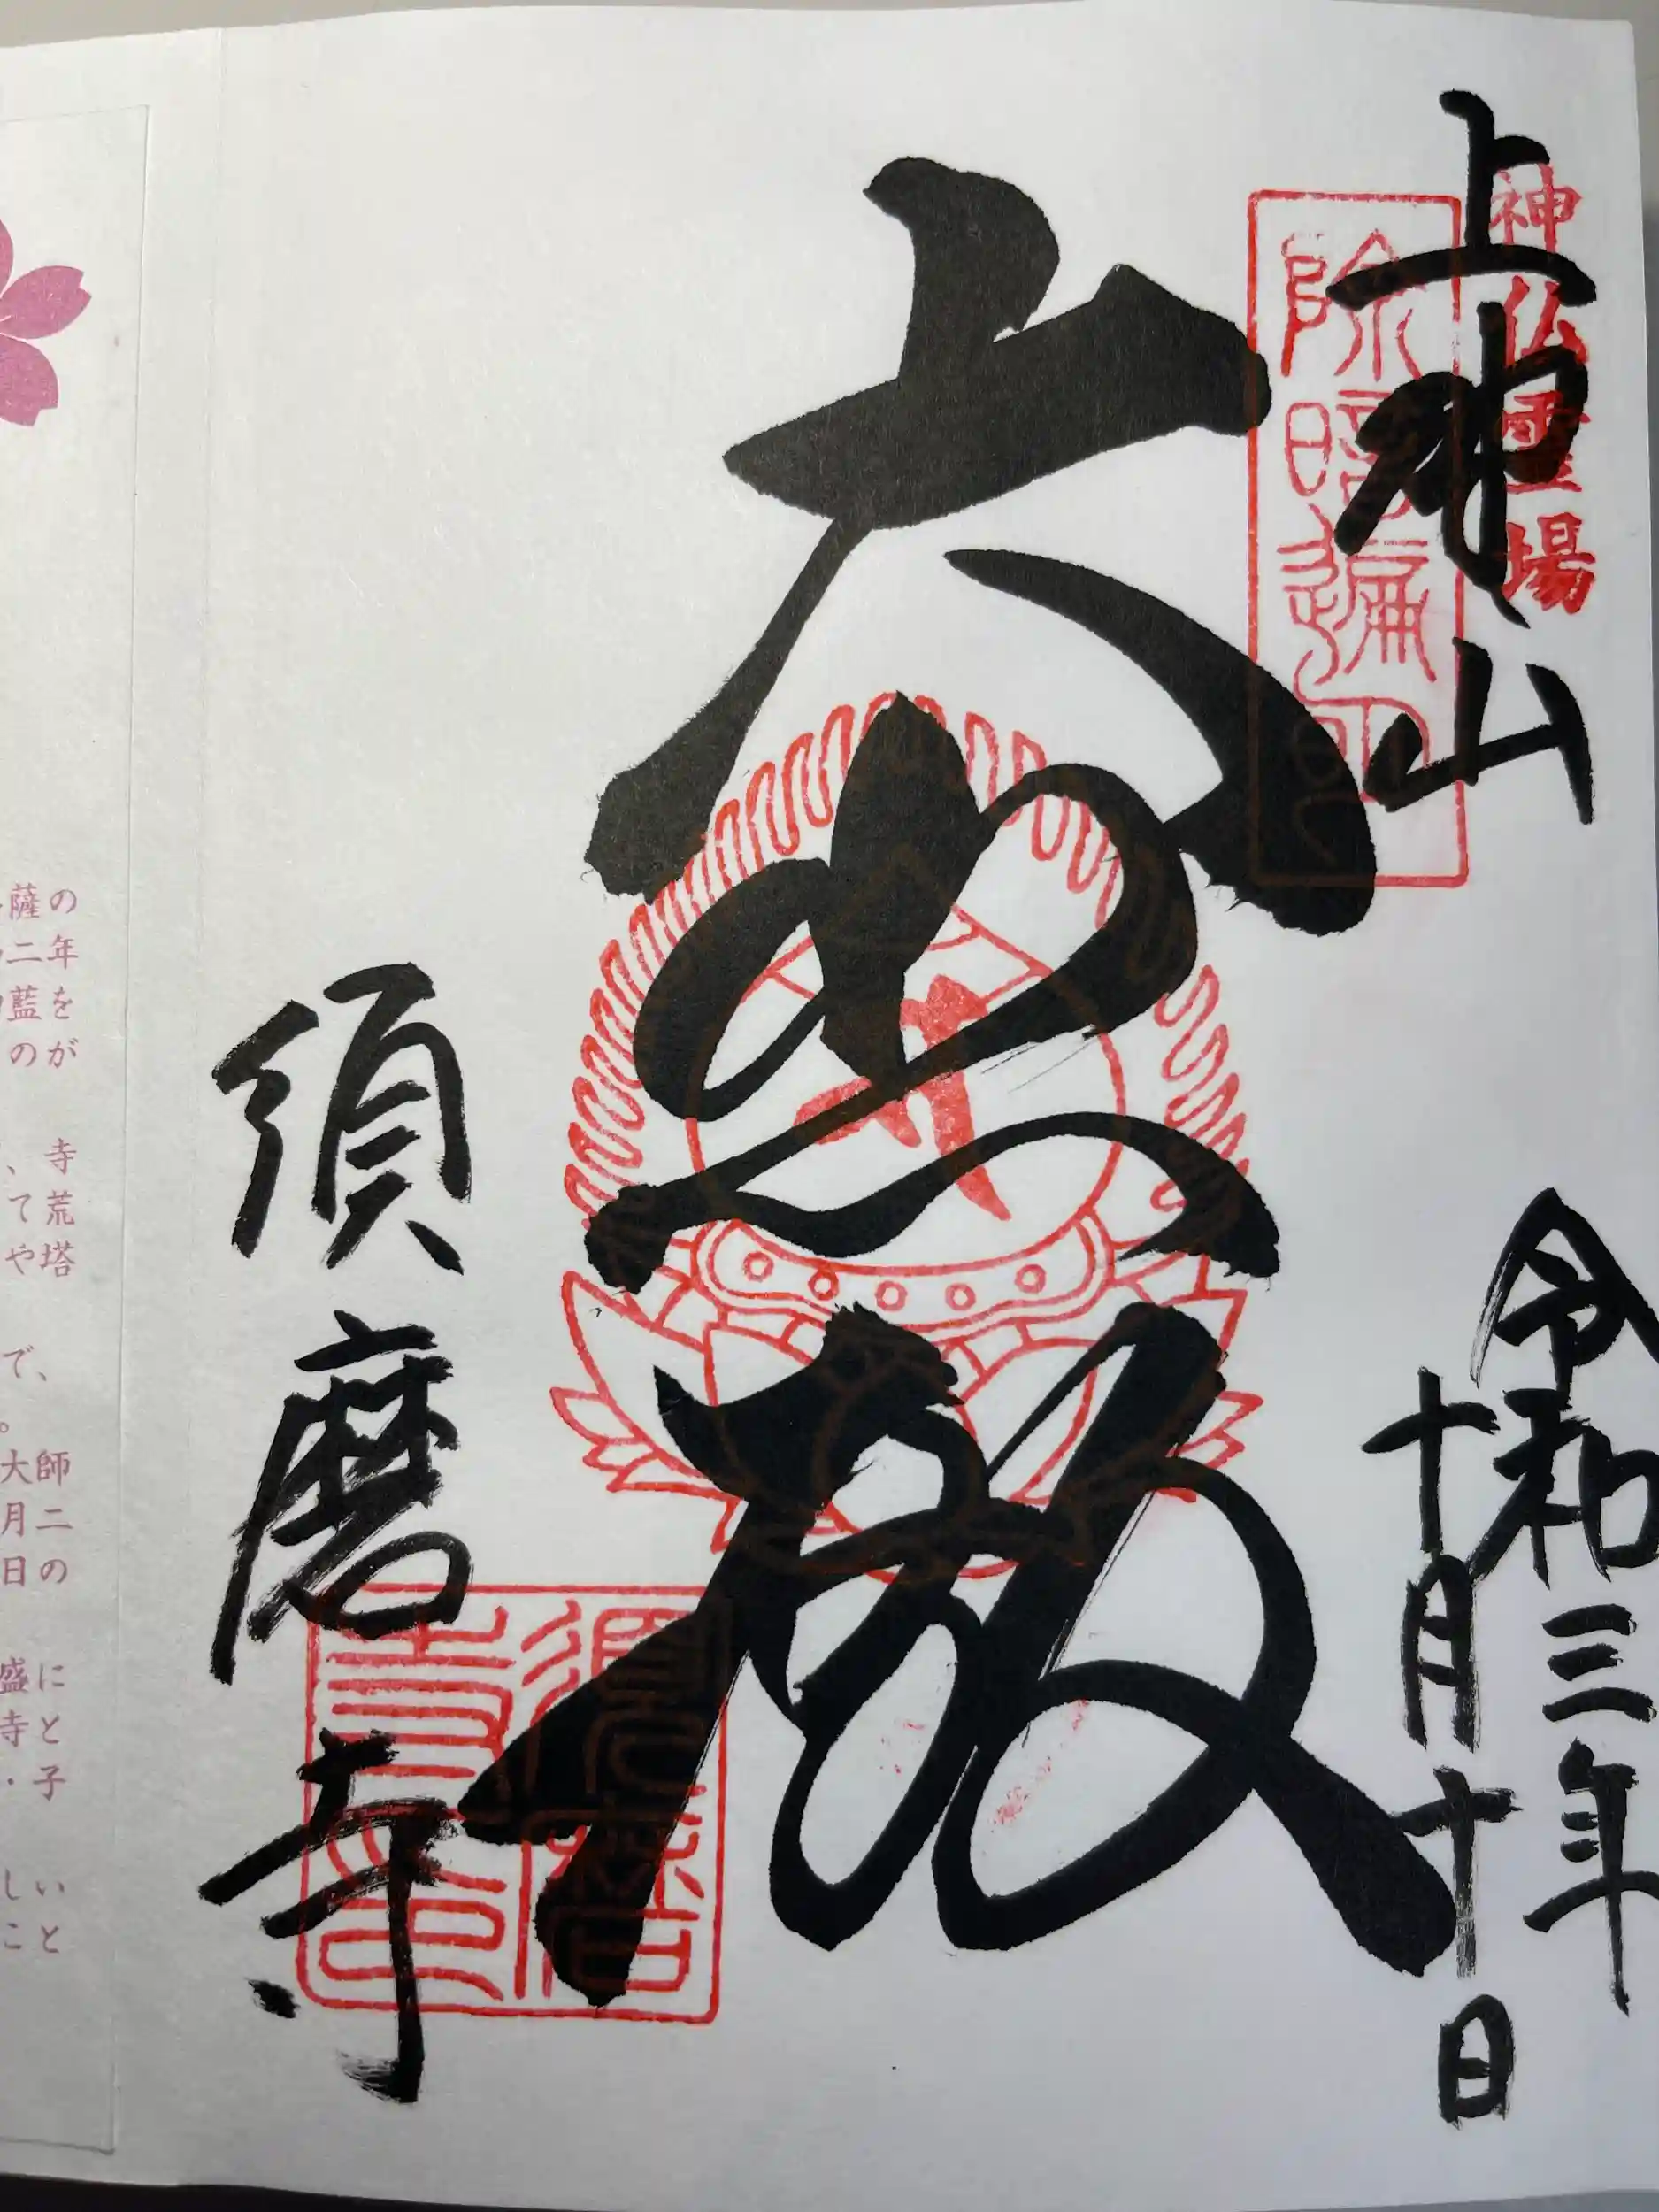 神仏霊場
上野山
令和三年
十月十日
除暗遍明
大悲殿
須磨寺
須磨寺印
薩の
二年
藍を
のが
、寺
て荒
や塔
で、
。
大師
月二
日の
盛に
寺と
・子
しい
こと